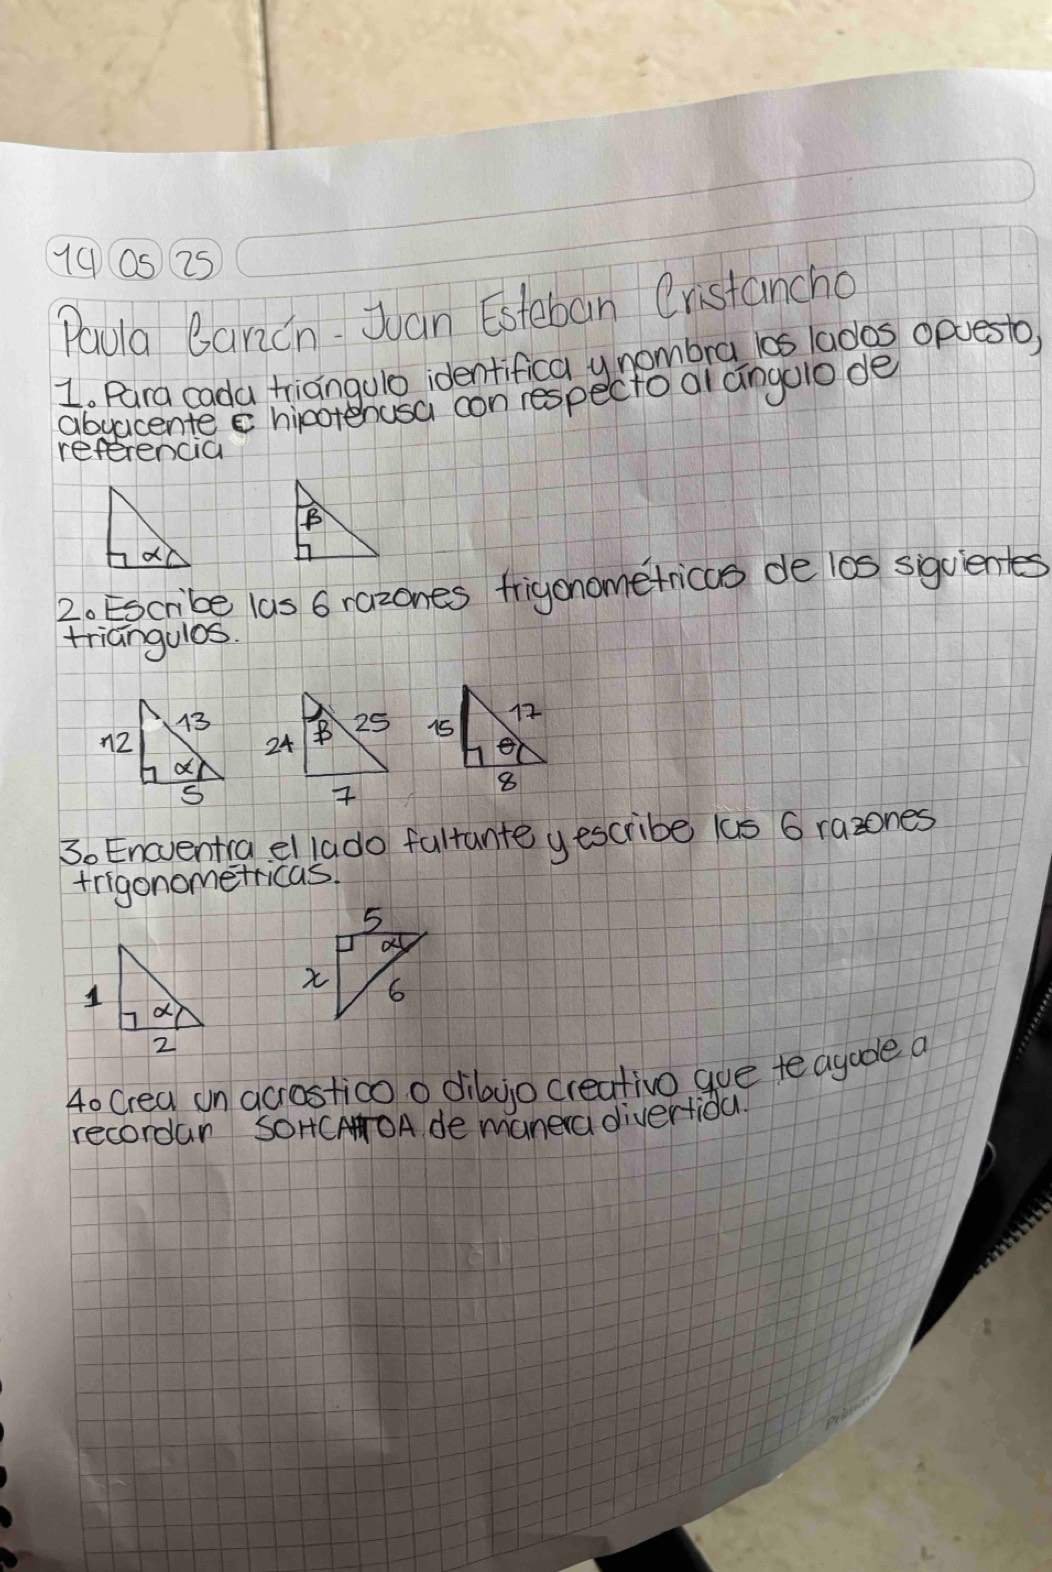 14 05 25
Paula Garzón - Juan Esteban Cristancho
1. Para cada triángulo identifica y nombra los lados opuesto,
abyacente e hipotenusa con respecto al ángulo de
referencia
α β
2. Escribe las 6 razones trigonométricas de los siguientes
triángulos.
12 13 α 5
24 β 25 7
15 17 θ 8
3. Encuentra el lado faltante y escribe las 6 razones
trigonométricas.
1 α 2
5 α x 6
4. Crea un acrostico o dibujo creativo que te ayude a
recordar SOHCAHTOA de manera divertida.